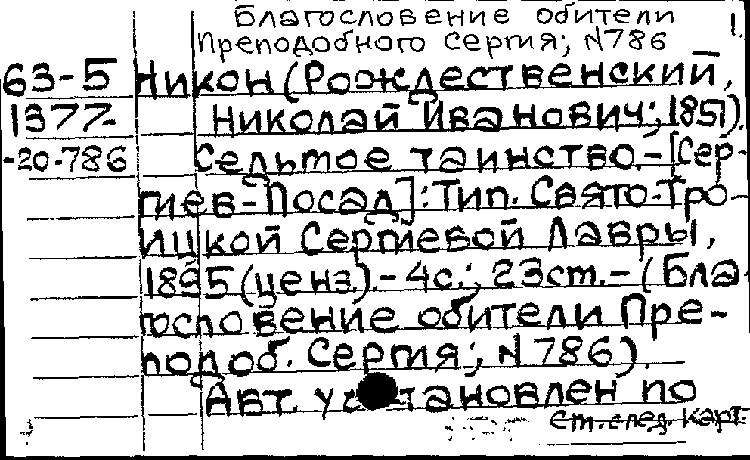 Благословение обители
Преподобного Сергия; N786
63-5 Никон (Рождественский,
1377- Николай Иванович; 1851).
-20-786 Седьмое таинство. - [Сер-
гиев-Посад]: Тип. Свято-Тро-
ицкой Сергиевой Лавры,
1895 (ценз.). - 4с.; 23см. - (Бла-
гословение обители Пре-
подоб. Сергия; N786).
Авт. установлен по
см. след. карт.